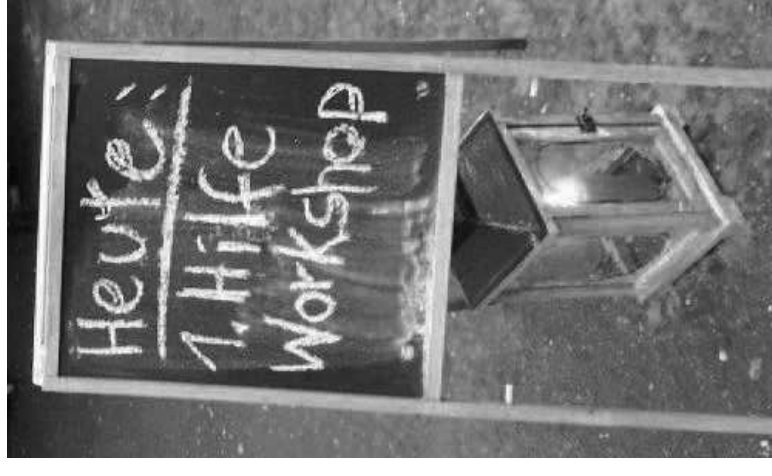 Heute:
1. Hilfe
Workshop